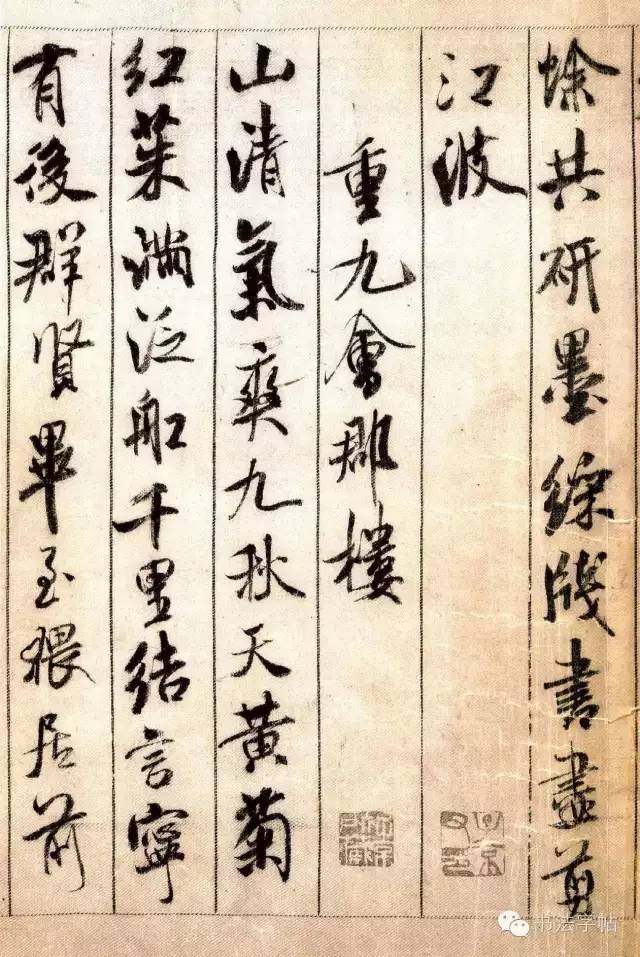 蜍共研墨綵牋書盡剪
江波
重九會郡樓
山清氣爽九秋天黃菊
紅茱滿泛船千里結言寧
有後群賢畢至猥居前
书法学帖